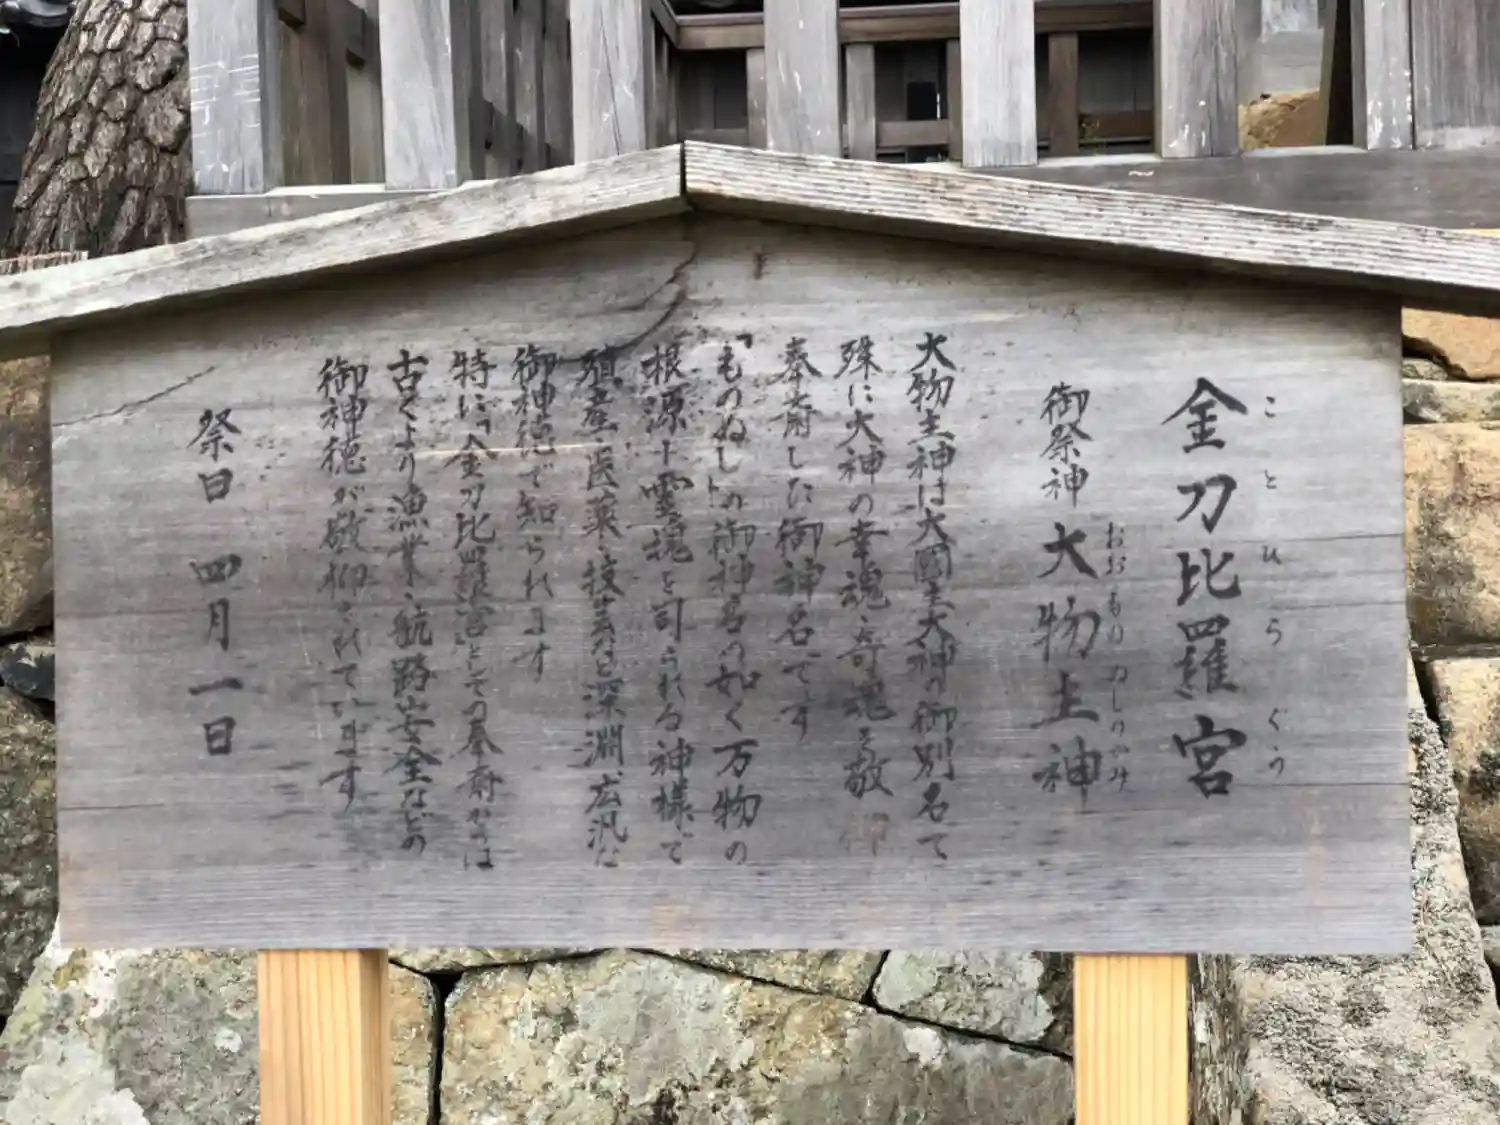 金刀比羅宮
ことひらぐう
御祭神 大物主神
おおものぬしのかみ
大物主神は大國主大神の御別名で
殊に大神の幸魂、奇魂を敬 御
奉斎した御神名です
「ものぬし」の御神名の如く万物の
根源＝霊魂を司られる神様で
殖産・医薬・技芸など深淵、広汎な
御神徳で知られます
特に「金刀比羅宮」としての奉斎からは
古くより漁業・航路安全などの
御神徳が敬仰されています
祭日 四月一日